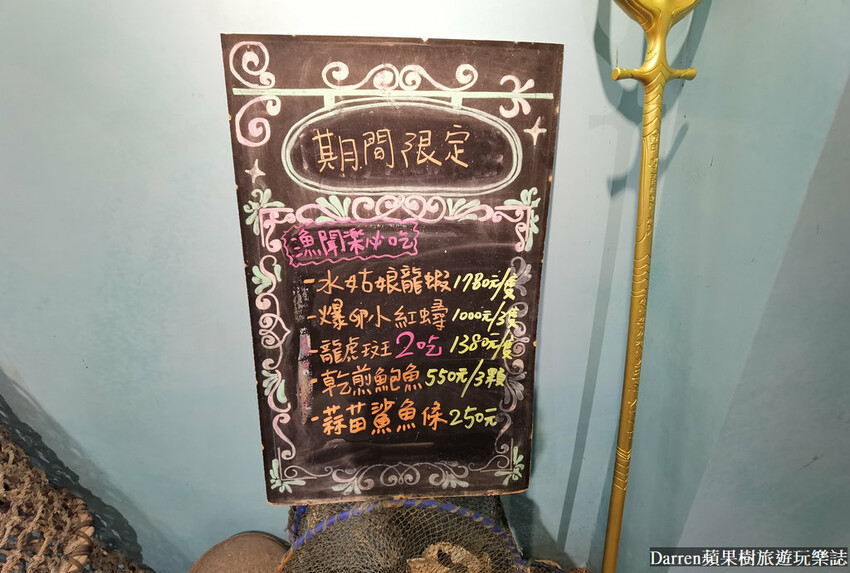 期間限定
漁聞樂必吃
-水姑娘龍蝦1780元/隻
-爆卵小紅蟳1000元/3隻
-龍虎斑2吃1380元/隻
-乾煎鮑魚550元/3顆
-蒜苗鯊魚條250元
Darren蘋果樹旅遊玩樂誌